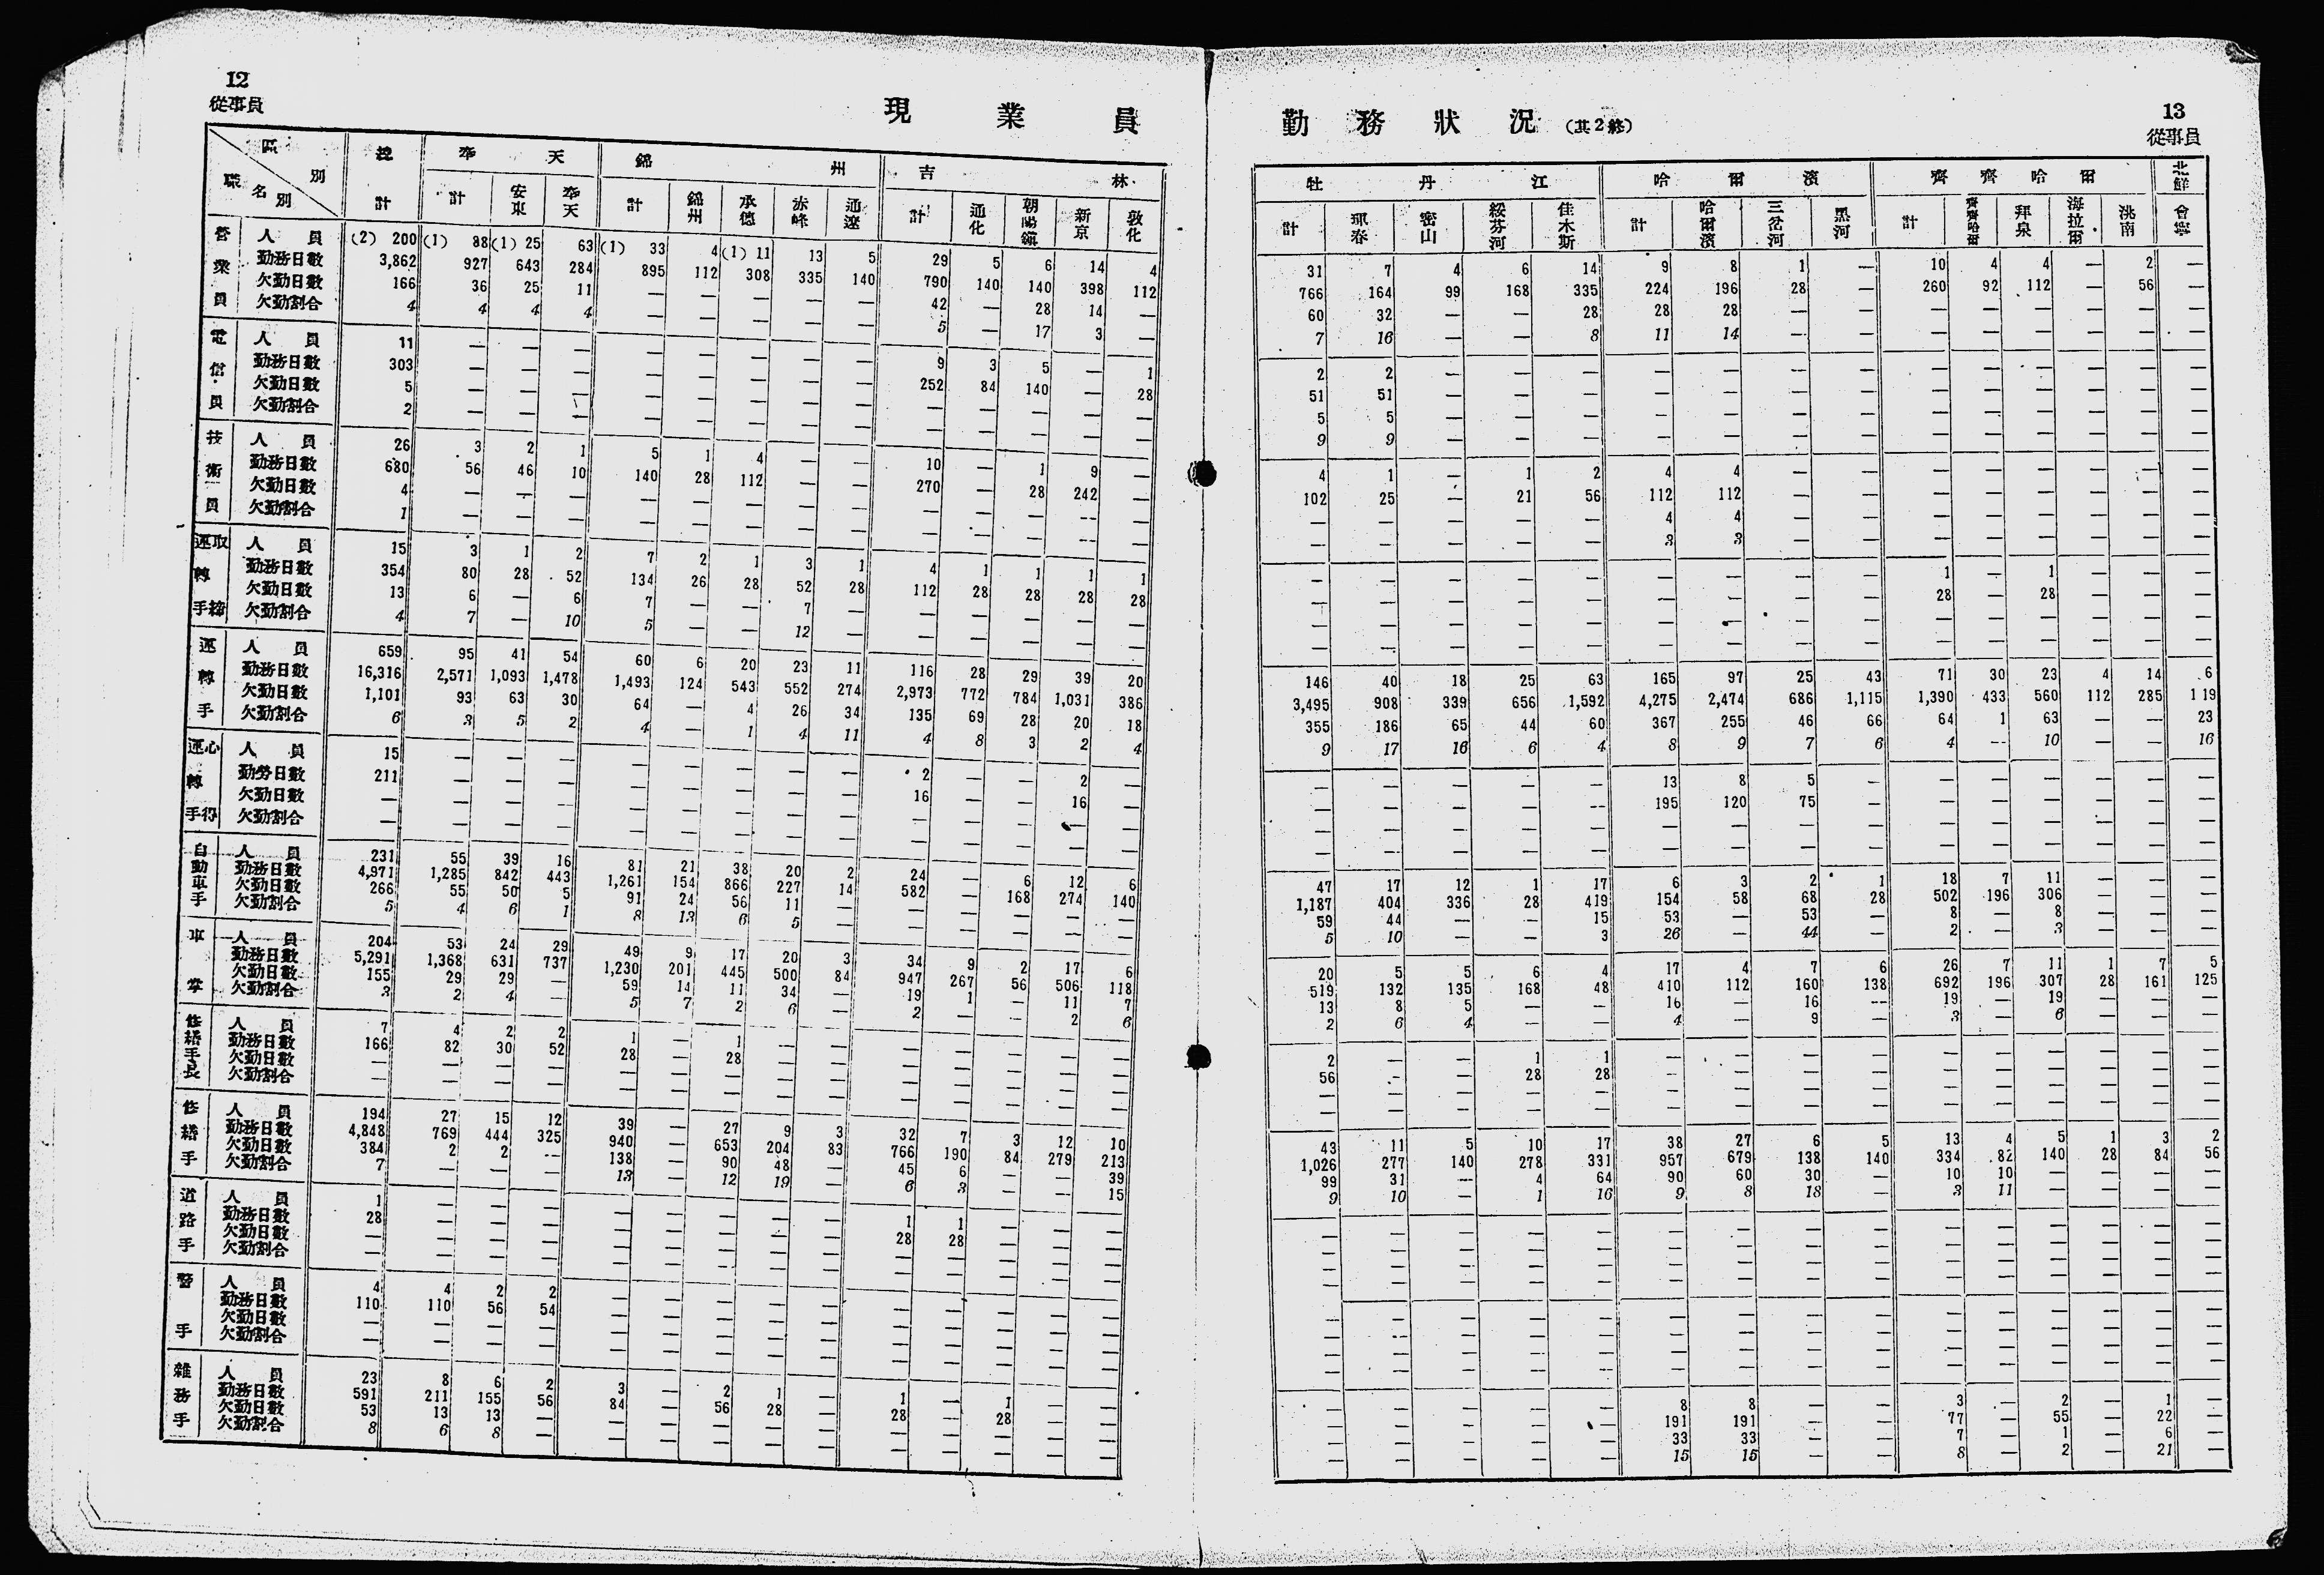 12
從事員
現業員
區別 職名別 總計 奉天 錦州 吉林
計 安東 奉天 計 錦州 承德 赤峰 通遼 計 通化 朝陽鎭 新京 敦化
營業員
人員 (2) 200 (1) 88 (1) 25 63 (1) 33 4 (1) 11 13 5 29 5 6 14 4
勤務日數 3,862 927 643 284 895 112 308 335 140 790 140 140 398 112
欠勤日數 166 36 25 11 — — — — — 42 — 28 14 —
欠勤割合 4 4 4 4 — — — — — 5 — 17 3 —
電信員
人員 11 — — — — — — — — 9 3 5 — 1
勤務日數 303 — — — — — — — — 252 84 140 — 28
欠勤日數 5 — — — — — — — — — — — — —
欠勤割合 2 — — — — — — — — — — — — —
技術員
人員 26 3 2 1 5 1 4 — — 10 — 1 9 —
勤務日數 680 56 46 10 140 28 112 — — 270 — 28 242 —
欠勤日數 4 — — — — — — — — — — — — —
欠勤割合 1 — — — — — — — — — — — — —
運轉手取締
人員 15 3 1 2 7 2 1 3 1 4 1 1 1 1
勤務日數 354 80 28 52 134 26 28 52 28 112 28 28 28 28
欠勤日數 13 6 — 6 7 — — 7 — — — — — —
欠勤割合 4 7 — 10 5 — — 12 — — — — — —
運轉手
人員 659 95 41 54 60 6 20 23 11 116 28 29 39 20
勤務日數 16,316 2,571 1,093 1,478 1,493 124 543 552 274 2,973 772 784 1,031 386
欠勤日數 1,101 93 63 30 64 — 4 26 34 135 69 28 20 18
欠勤割合 6 3 5 2 4 — 1 4 11 4 8 3 2 4
運轉手心得
人員 15 — — — — — — — — 2 — — 2 —
勤勞日數 211 — — — — — — — — 16 — — 16 —
欠勤日數 — — — — — — — — — — — — — —
欠勤割合 — — — — — — — — — — — — — —
自動車手
人員 231 55 39 16 81 21 38 20 2 24 — 6 12 6
勤務日數 4,971 1,285 842 443 1,261 154 866 227 14 582 — 168 274 140
欠勤日數 266 55 50 5 91 24 56 11 — — — — — —
欠勤割合 5 4 6 1 8 13 6 5 — — — — — —
車掌
人員 204 53 24 29 49 9 17 20 3 34 9 2 17 6
勤務日數 5,291 1,368 631 737 1,230 201 445 500 84 947 267 56 506 118
欠勤日數 155 29 29 — 59 14 11 34 — 19 1 — 11 7
欠勤割合 3 2 4 — 5 7 2 6 — 2 — — 2 6
修繕手長
人員 7 4 2 2 1 — 1 — — — — — — —
勤務日數 166 82 30 52 28 — 28 — — — — — — —
欠勤日數 — — — — — — — — — — — — — —
欠勤割合 — — — — — — — — — — — — — —
修繕手
人員 194 27 15 12 39 — 27 9 3 32 7 3 12 10
勤務日數 4,848 769 444 325 940 — 653 204 83 766 190 84 279 213
欠勤日數 384 2 2 — 138 — 90 48 — 45 6 — — 39
欠勤割合 7 — — — 13 — 12 19 — 6 3 — — 15
道路手
人員 1 — — — — — — — — 1 1 — — —
勤務日數 28 — — — — — — — — 28 28 — — —
欠勤日數 — — — — — — — — — — — — — —
欠勤割合 — — — — — — — — — — — — — —
警手
人員 4 4 2 2 — — — — — — — — — —
勤務日數 110 110 56 54 — — — — — — — — — —
欠勤日數 — — — — — — — — — — — — — —
欠勤割合 — — — — — — — — — — — — — —
雜務手
人員 23 8 6 2 3 — 2 1 — 1 — 1 — —
勤務日數 591 211 155 56 84 — 56 28 — 28 — 28 — —
欠勤日數 53 13 13 — — — — — — — — — — —
欠勤割合 8 6 8 — — — — — — — — — — —
勤務狀況 (其2終)
13
從事員
牡丹江 哈爾濱 齊齊哈爾 北鮮
計 琿春 密山 綏芬河 佳木斯 計 哈爾濱 三岔河 黑河 計 齊齊哈爾 拜泉 海拉爾 洮南 會寧
31 7 4 6 14 9 8 1 — 10 4 4 — 2 —
766 164 99 168 335 224 196 28 — 260 92 112 — 56 —
60 32 — — 28 28 28 — — — — — — — —
7 16 — — 8 11 14 — — — — — — — —
2 2 — — — — — — — — — — — — —
51 51 — — — — — — — — — — — — —
5 5 — — — — — — — — — — — — —
9 9 — — — — — — — — — — — — —
4 1 — 1 2 4 4 — — — — — — — —
102 25 — 21 56 112 112 — — — — — — — —
— — — — — 4 4 — — — — — — — —
— — — — — 3 3 — — — — — — — —
— — — — — — — — — 1 — 1 — — —
— — — — — — — — — 28 — 28 — — —
— — — — — — — — — — — — — — —
— — — — — — — — — — — — — — —
146 40 18 25 63 165 97 25 43 71 30 23 4 14 6
3,495 908 339 656 1,592 4,275 2,474 686 1,115 1,390 433 560 112 285 119
355 186 65 44 60 367 255 46 66 64 1 63 — — 23
9 17 16 6 4 8 9 7 6 4 — 10 — — 16
— — — — — 13 8 5 — — — — — — —
— — — — — 195 120 75 — — — — — — —
— — — — — — — — — — — — — — —
— — — — — — — — — — — — — — —
47 17 12 1 17 6 3 2 1 18 7 11 — — —
1,187 404 336 28 419 154 58 68 28 502 196 306 — — —
59 44 — — 15 53 — 53 — 8 — 8 — — —
5 10 — — 3 26 — 44 — 2 — 3 — — —
20 5 5 6 4 17 4 7 6 26 7 11 1 7 5
519 132 135 168 48 410 112 160 138 692 196 307 28 161 125
13 8 5 — — 16 — 16 — 19 — 19 — — —
2 6 4 — — 4 — 9 — 3 — 6 — — —
2 — — 1 1 — — — — — — — — — —
56 — — 28 28 — — — — — — — — — —
— — — — — — — — — — — — — — —
— — — — — — — — — — — — — — —
43 11 5 10 17 38 27 6 5 13 4 5 1 3 2
1,026 277 140 278 331 957 679 138 140 334 82 140 28 84 56
99 31 — 4 64 90 60 30 — 10 10 — — — —
9 10 — 1 16 9 8 18 — 3 11 — — — —
— — — — — — — — — — — — — — —
— — — — — — — — — — — — — — —
— — — — — — — — — — — — — — —
— — — — — — — — — — — — — — —
— — — — — — — — — — — — — — —
— — — — — — — — — — — — — — —
— — — — — — — — — — — — — — —
— — — — — — — — — — — — — — —
— — — — — 8 8 — — 3 — 2 — 1 —
— — — — — 191 191 — — 77 — 55 — 22 —
— — — — — 33 33 — — 7 — 1 — 6 —
— — — — — 15 15 — — 8 — 2 — 21 —